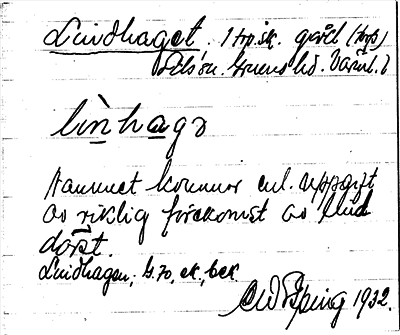 Lindhaget. 1 trp.sk. gård (torp)
Grums hd. Värml. l
lìnhagə
Namnet kommer enl. uppgift
av riklig förekomst av lind
därst.
Lindhagen, G. 70, ek, bek.
1932.